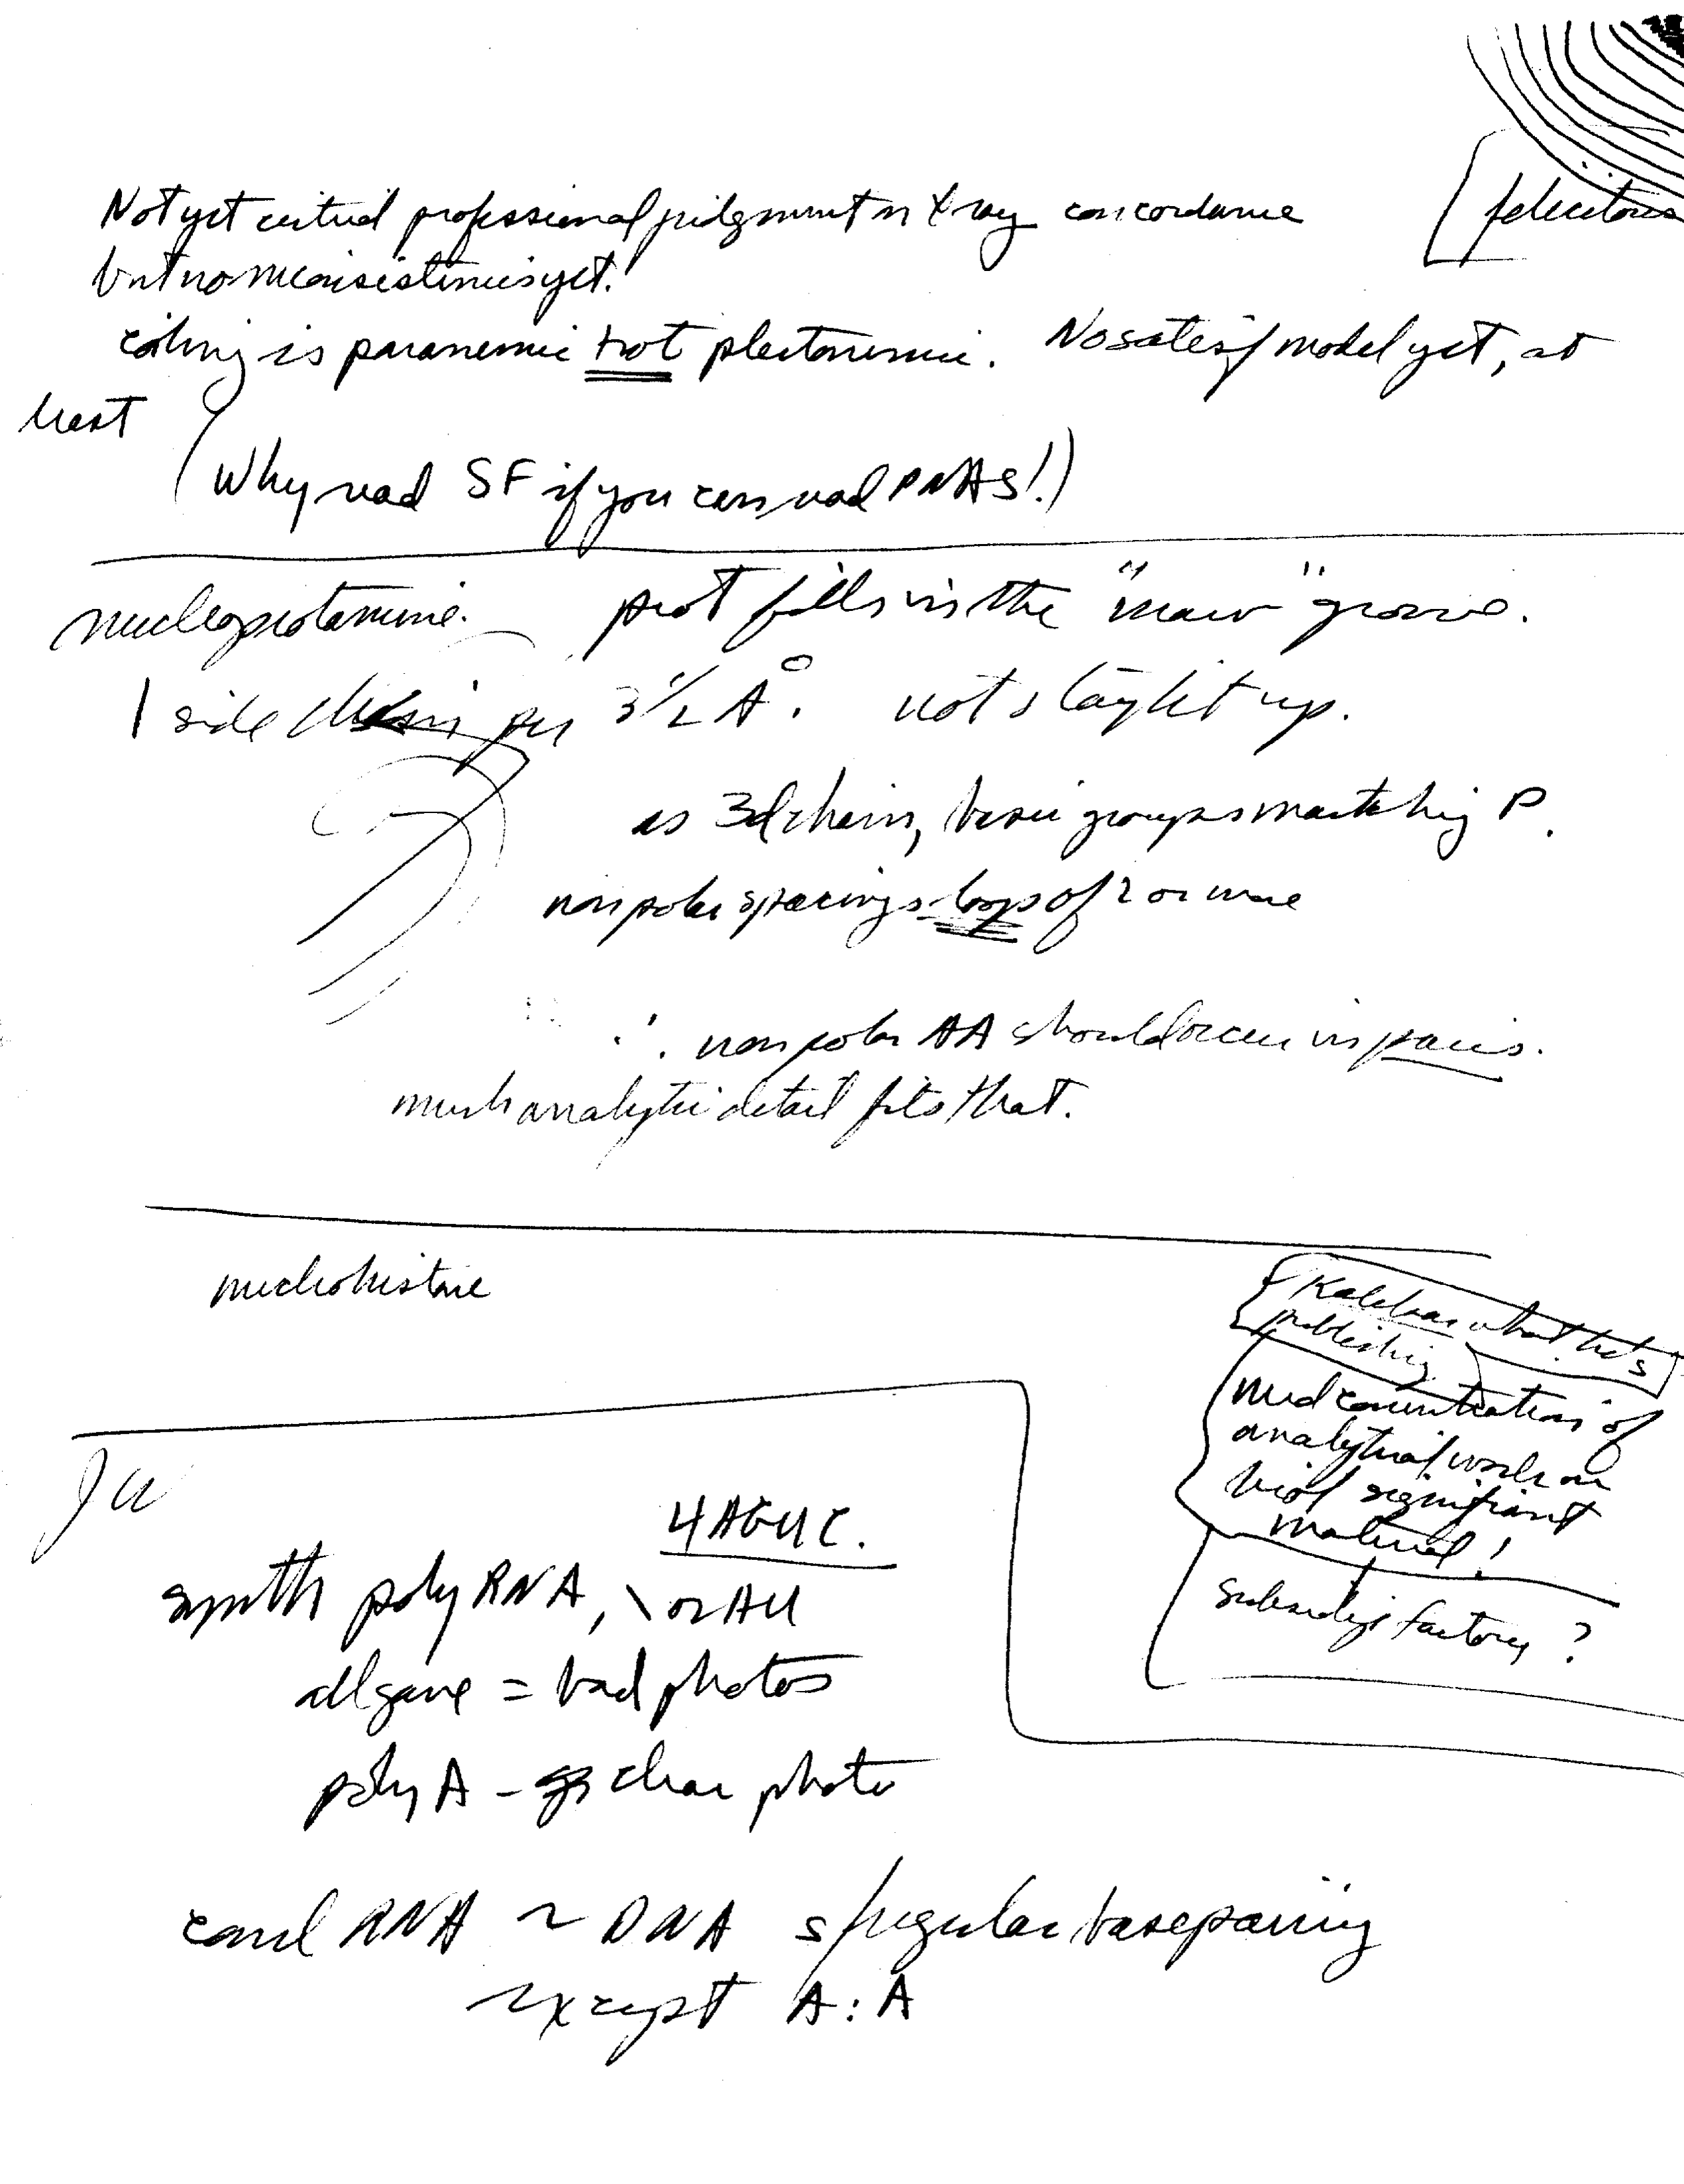 Not yet critical professional judgment on X ray concordance
[felicitous
but no inconsistencies yet.
coiling is paranemic not plectonemic. No satisf model yet, at
least
(Why read SF if you can read PNAS!)
nucleoprotamine. prot fills in the "minor" groove.
1 side chain per 3 1/2 Å. not straight up.
as 3d chain, basic groups matching P.
nonpolar spacings loops of 2 or more
∴ nonpolar AA should occur in pairs.
much analytic detail fits that.
nucleohistone
what he's
publishing
need concentration of
analytical work on
biol significant
material!
subsidize factory?
4 AGUC.
synth poly RNA, or AU
all gave = bad photos
poly A - clear photo
RNA ~ DNA s/regular base pairing
except A:A